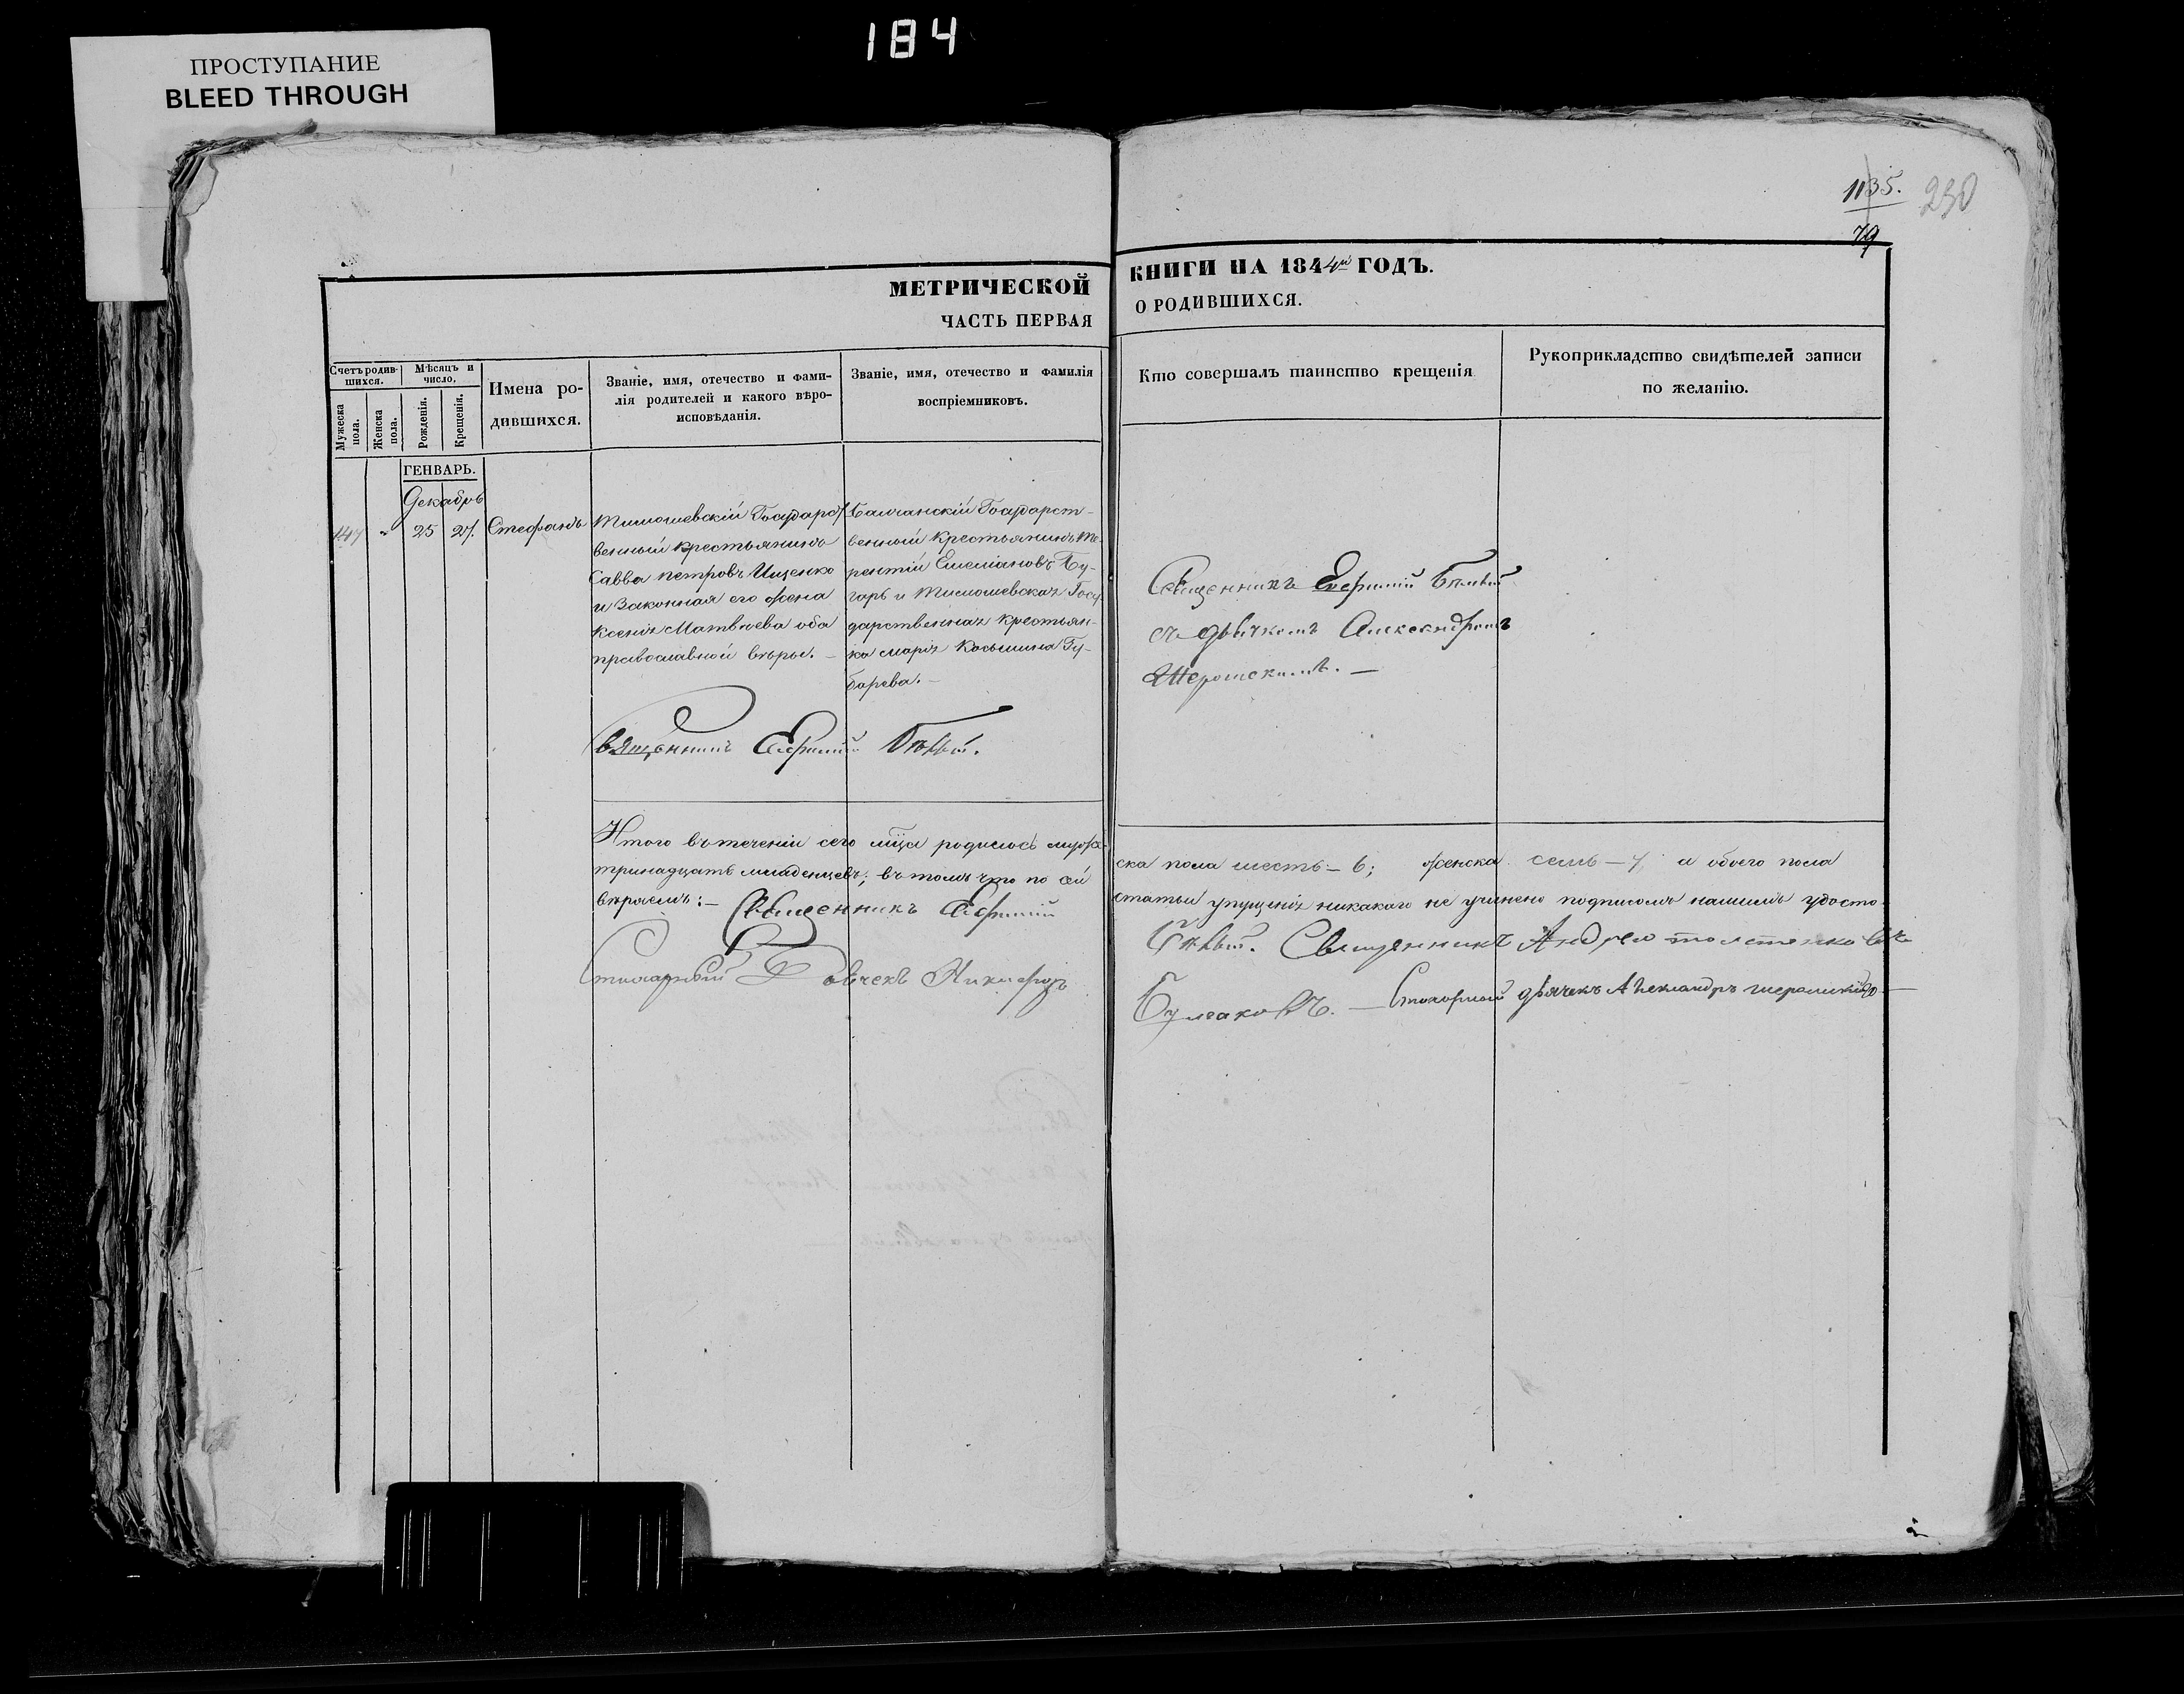 184
ПРОСТУПАНИЕ
BLEED THROUGH
1135.
79
230
МЕТРИЧЕСКОЙ
КНИГИ НА 1844й ГОДЪ.
ЧАСТЬ ПЕРВАЯ
О РОДИВШИХСЯ.
Счетъ родив-
шихся.
Мужеска пола.
Женска пола.
Мѣсяцъ и
число.
Рожденія.
Крещенія.
Имена ро-
дившихся.
Званіе, имя, отечество и фами-
лія родителей и какого вѣро-
исповѣданія.
Званіе, имя, отечество и фамилія
воспріемниковъ.
Кто совершалъ таинство крещенія
Рукоприкладство свидѣтелей записи
по желанію.
ГЕНВАРЬ.
Декабрь
147 " 25 27. Стефанъ
Тимошевскій Государст
венный крестьянинъ
Савва Петровъ Ищенко
и Законная его жена
Ксенія Матвѣева оба
православной вѣры. —
Государст-
венный крестьянинъ Те-
рентій Емеліановъ Бу-
гарь и Тимошевская Госу-
дарственная крестьян-
ка Марія Косьмина Гу-
барева. —
Священникъ Ефимій Бѣлый
съ дьячкомъ Александромъ
Шерошскимъ. —
Священникъ Ефимій Бѣлый.
Итого въ теченіи сего мца родилось мужа-
ска пола шесть — 6; женска семь — 7; а обоего пола
тринадцать младенцевъ; въ томъ что по сей
статьи упущенія никакаго не учинено подписомъ нашимъ удосто-
вѣряемъ: — Священникъ Ефимій
Бѣлый. Священникъ Андрей Толстенковъ
Дьячекъ Никифоръ
Булгаковъ. — дьячекъ Александръ Шерошскій